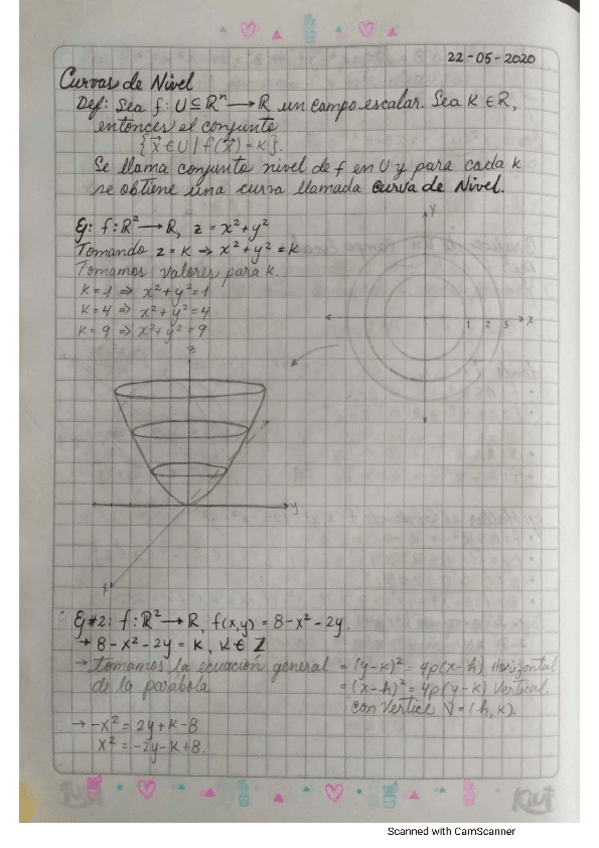 22-05-2020
Curvas de Nivel
Def: Sea f: U ⊆ ℝⁿ → ℝ un campo escalar. Sea K ∈ ℝ,
entonces el conjunto
{x⃗ ∈ U / f(x⃗) = K}.
Se llama conjunto nivel de f en U y para cada k
se obtiene una curva llamada curva de Nivel.
Ej: f: ℝ² → ℝ, z = x² + y²
Tomando z = K ⇒ x² + y² = K
Tomamos valores para k.
K = 1 ⇒ x² + y² = 1
K = 4 ⇒ x² + y² = 4
K = 9 ⇒ x² + y² = 9
Y
1 2 3 x
z
y
x
Ej #2: f: ℝ² → ℝ, f(x,y) = 8 - x² - 2y.
→ 8 - x² - 2y = K, K ∈ Z
→ tomamos la ecuación general = (y-k)² = 4p(x-h) Horizontal
de la parábola = (x-h)² = 4p(y-k) Vertical
con vertice V = (h, k).
→ -x² = 2y + K - 8
x² = -2y - K + 8.
Kiut
Scanned with CamScanner